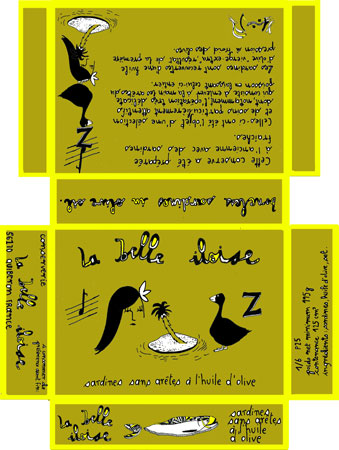 Cette conserve a été préparée
à l'ancienne avec des sardines
fraîches.
Celles-ci ont été l'objet d'une sélection
et de soins particulièrement attentifs
qui consiste à enlever à la main les arêtes du
poisson
Les sardines sont recouvertes d'une huile
d'olive vierge extra
boneless sardines in olive oil
la belle iloise
Z
sardines sans arêtes à l'huile d'olive
conserverie
la belle iloise
56170 QUIBERON FRANCE
à consommer de
préférence avant fin
1/6 P25
poids net minimum 115 g
contenance 125 cm³
ingrédients : sardines, huile d'olive, sel.
la belle
iloise
sardines
sans arêtes
à l'huile
d'olive